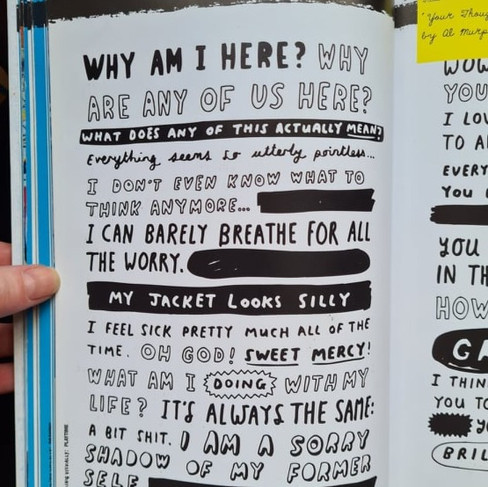 WHY AM I HERE? WHY
ARE ANY OF US HERE?
WHAT DOES ANY OF THIS ACTUALLY MEAN?
Everything seems so utterly pointless...
I DON'T EVEN KNOW WHAT TO
THINK ANYMORE...
I CAN BARELY BREATHE FOR ALL
THE WORRY.
MY JACKET LOOKS SILLY
I FEEL SICK PRETTY MUCH ALL OF THE
TIME. OH GOD! SWEET MERCY!
WHAT AM I DOING WITH MY
LIFE? IT'S ALWAYS THE SAME:
A BIT SHIT. I AM A SORRY
SHADOW OF MY FORMER
SELF
"Your
by Al
YOU
I
TO
EVERY
YOU
YOU
IN
HOW
I
YOU TO